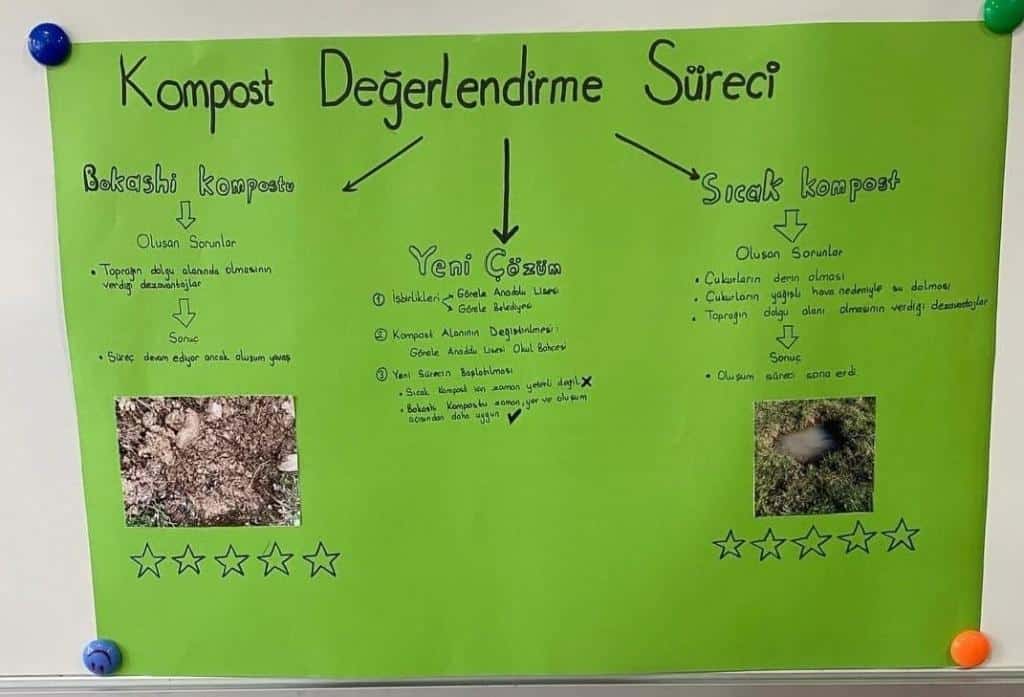 Kompost Değerlendirme Süreci
Bokashi kompostu
Oluşan Sorunlar
• Toprağın dolgu alanında olmasının
verdiği dezavantajlar
Sonuç
• Süreç devam ediyor ancak oluşum yavaş
Yeni Çözüm
① İşbirlikleri → Görele Anadolu Lisesi
→ Görele Belediyesi
② Kompost Alanının Değiştirilmesi:
Görele Anadolu Lisesi Okul Bahçesi
③ Yeni Sürecin Başlatılması
• Sıcak kompost için zaman yeterli değil ✗
• Bokashi Kompostu zaman, yer ve oluşum
açısından daha uygun ✓
Sıcak kompost
Oluşan Sorunlar
• Çukurların derin olması
• Çukurların yağışlı hava nedeniyle su dolması
• Toprağın dolgu alanı olmasının verdiği dezavantajlar
Sonuç
• Oluşum süreci sona erdi.